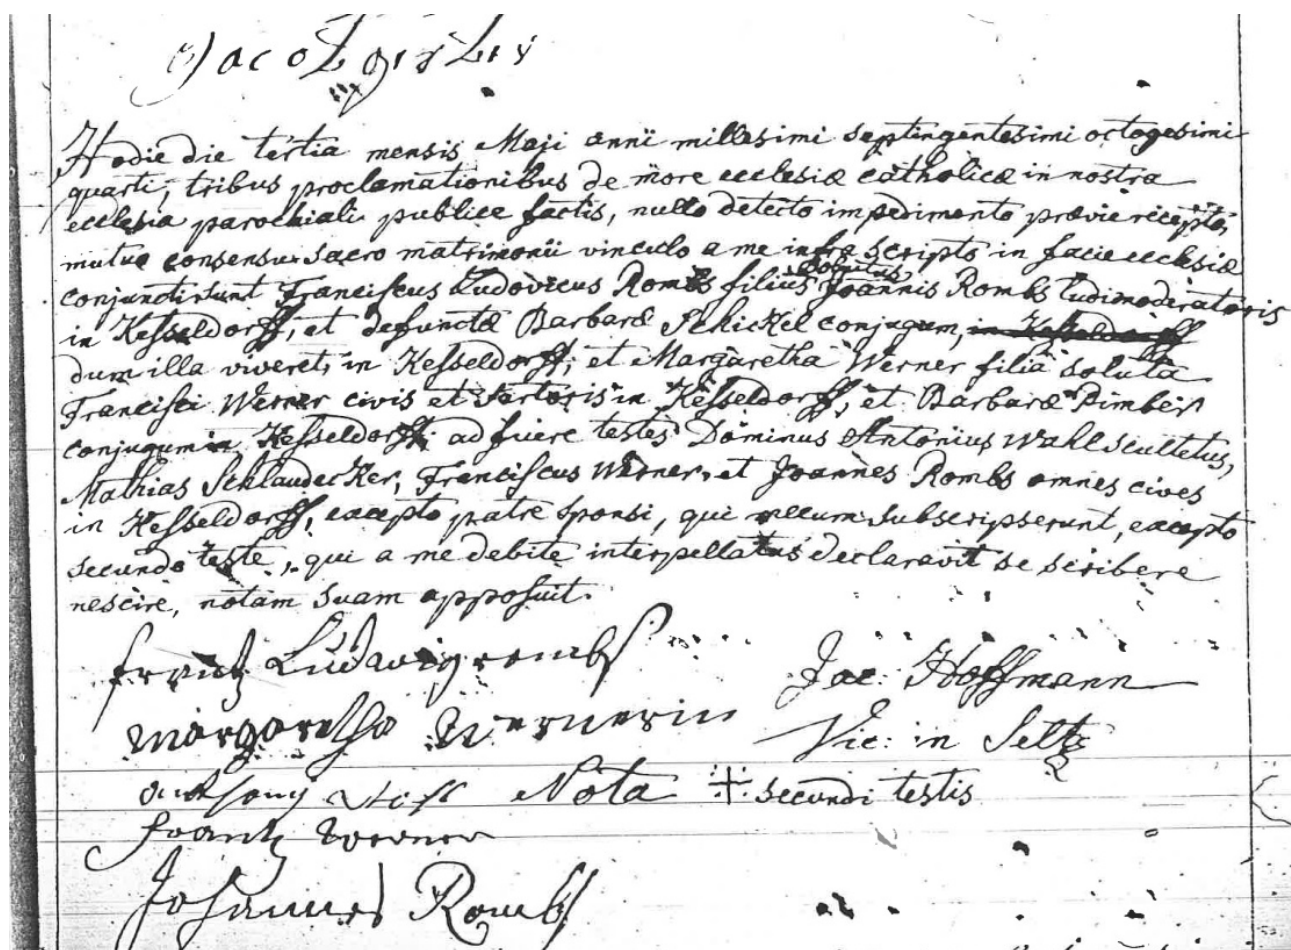 Hodie die tertia mensis Maji anni millesimi septingentesimi octogesimi
quarti, tribus proclamationibus de more ecclesiæ catholicæ in nostra
ecclesia parochiali publice factis, nullo detecto impedimento prævie recepto,
mutuo consensu sacro matrimonii vinculo a me infra scripto in facie ecclesiæ
conjuncti sunt Franciscus Ludovicus Rombs filius solutus Joannis Rombs ludimoderatoris
in Kesseldorff, et defunctæ Barbaræ Schickel conjugum, in Kesseldorff
dum illa viveret, in Kesseldorff, et Margaretha Werner filia soluta
Francisci Werner civis et sartoris in Kesseldorff, et Barbaræ
conjugum in Kesseldorff; adfuere testes Dominus Antonius Wahl scultetus,
Mathias Schlaudecker, Franciscus Werner, et Joannes Rombs omnes cives
in Kesseldorff, excepto patre sponsi, qui mecum subscripserunt, excepto
secundo teste, qui a me debite interpellatus declaravit se scribere
nescire, notam suam apposuit.
frantz Ludwig rombs
Jac: Hoffmann
margaretha Wernerin
Vic: in Seltz
Nota + secundi testis
frantz werner
Johannes Rombs